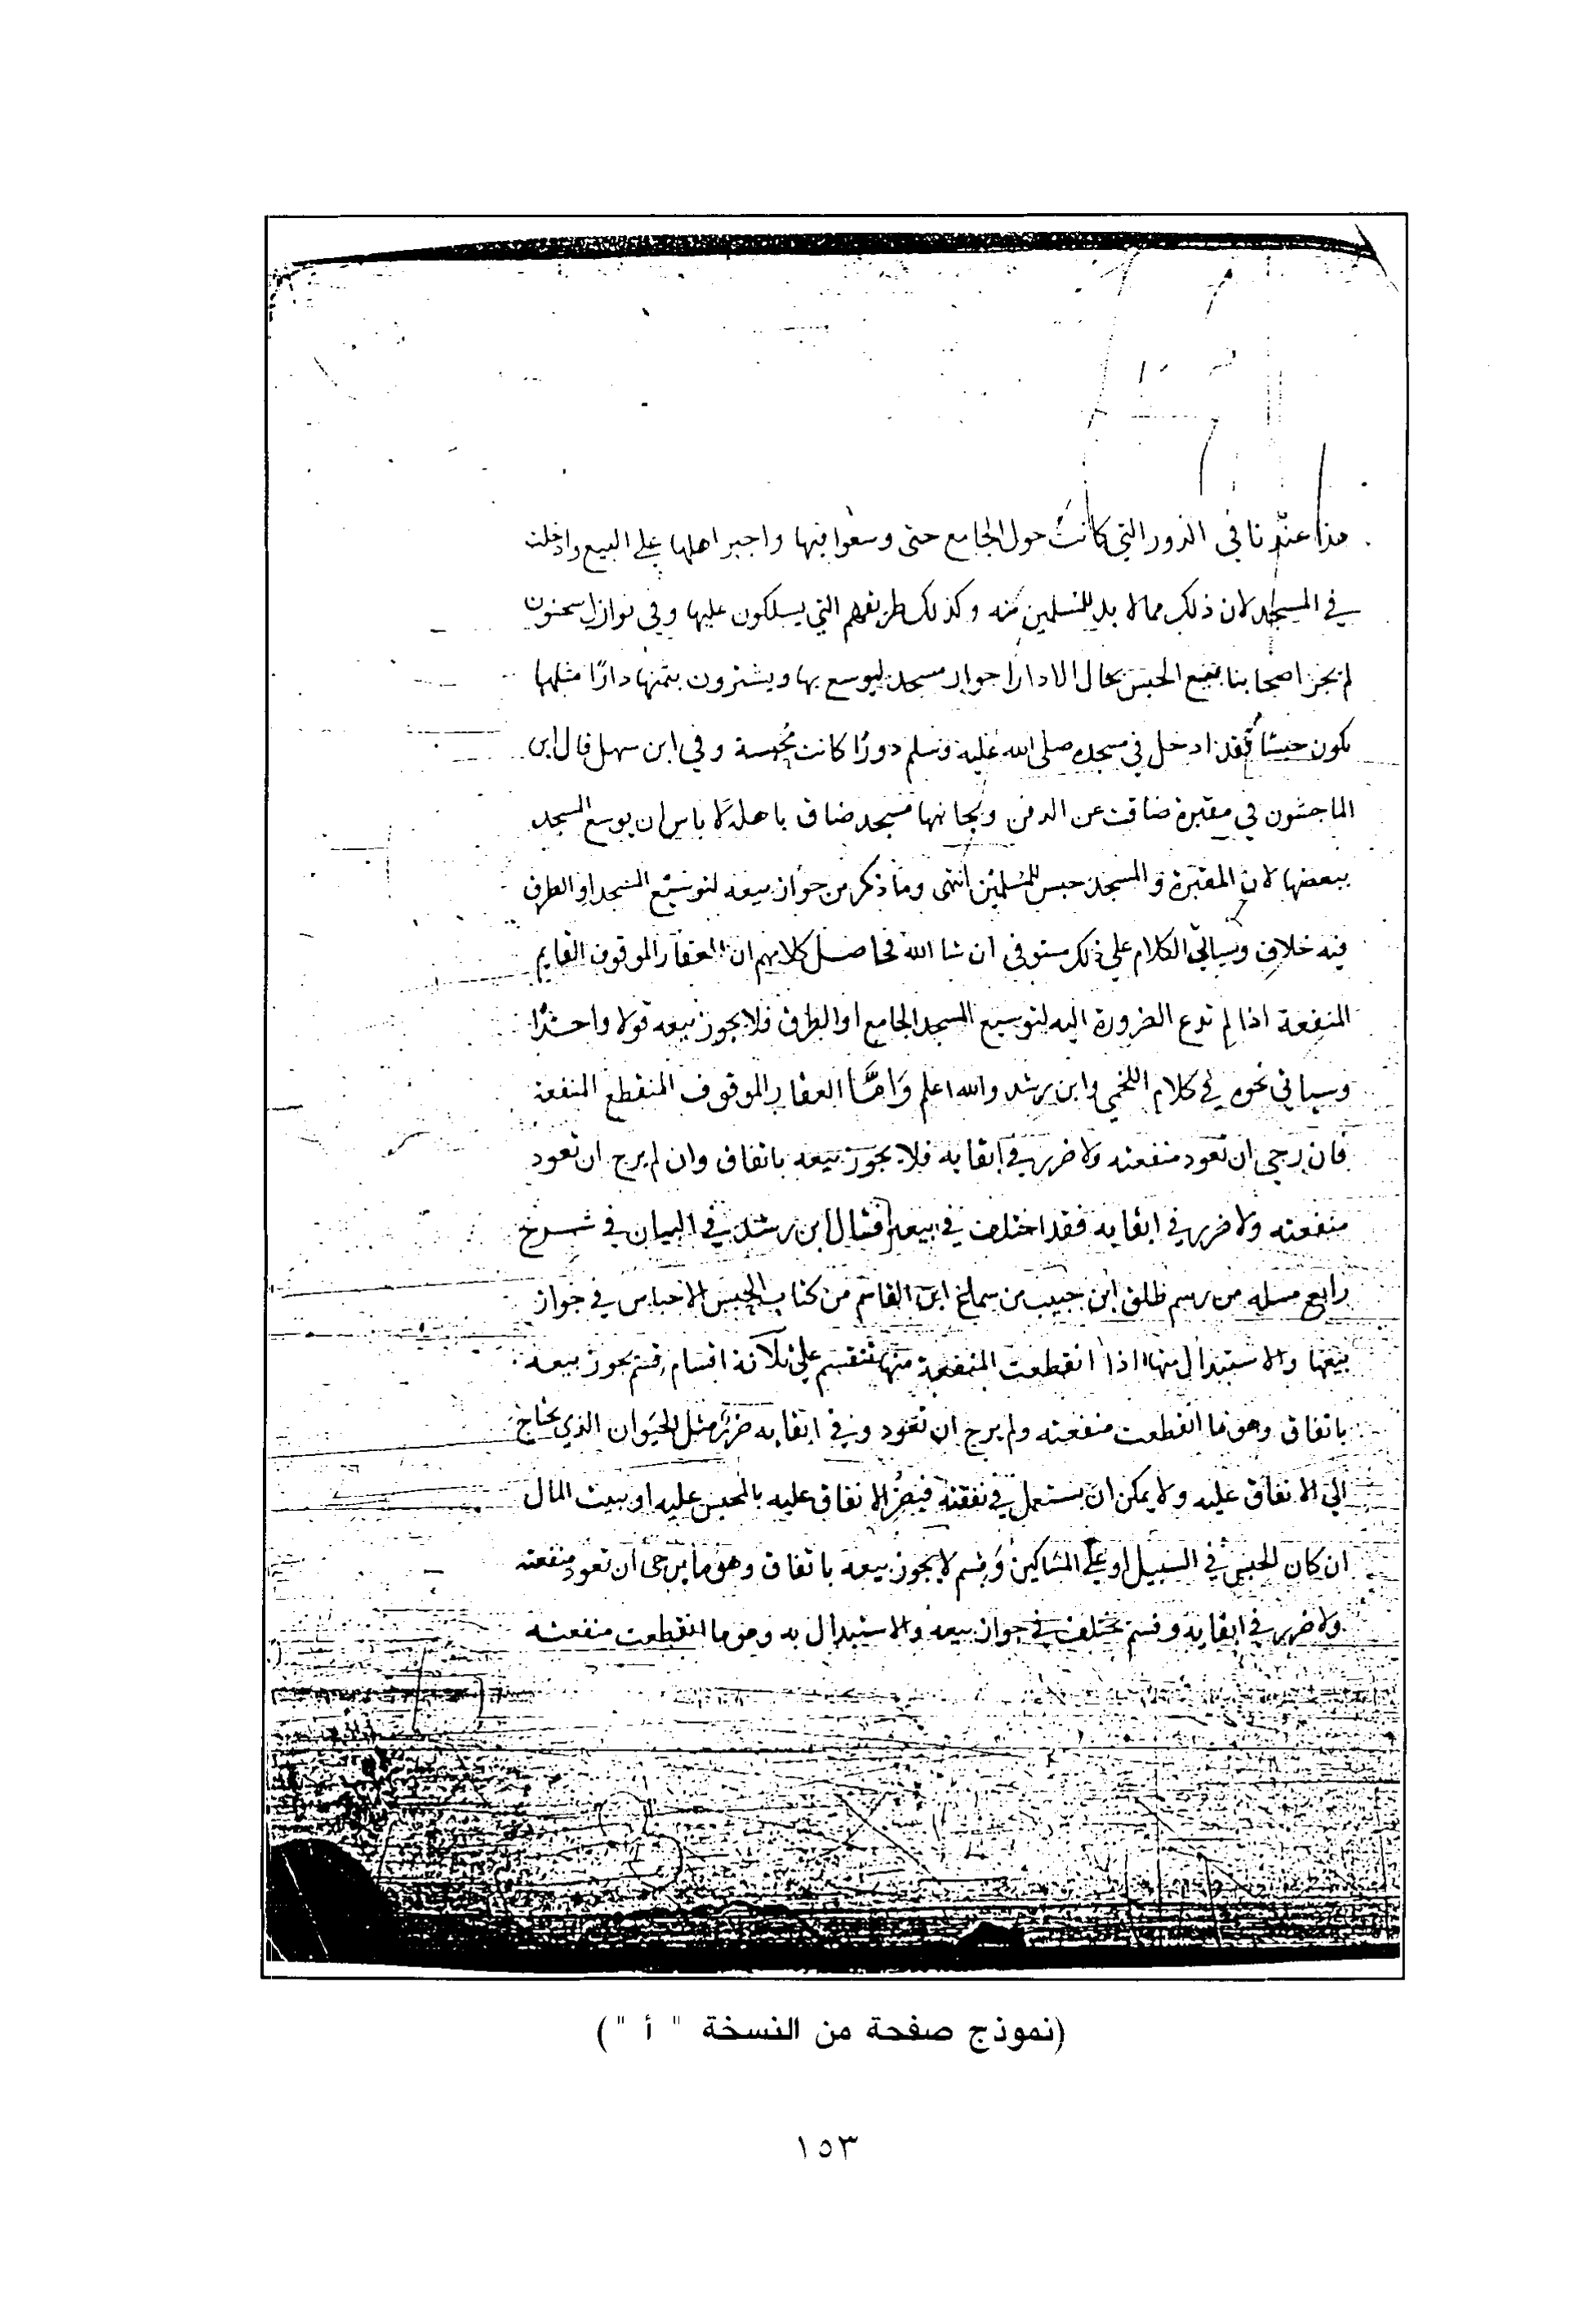 هذا عندنا في الدور التي كانت حول الجامع حتى وسعوا فيها واجبر اهلها على البيع وادخلت
في المسجد لان ذلك مما لا بد للمسلمين منه وكذلك طريقهم التي يسلكون عليها وفي نوازل سحنون
لم يجز اصحابنا بيع الحبس بحال الا دارا جوار مسجد ليوسع بها ويشترون بثمنها دارًا مثلها
تكون حبسًا فقد ادخل في مسجده صلى الله عليه وسلم دورًا كانت محبسة وفي ابن سهل قال ابن
الماجشون في مقبرة ضاقت عن الدفن وبجانبها مسجد ضاق باهله لا باس ان يوسع المسجد
ببعضها لان المقبرة والمسجد حبس للمسلمين انتهى وما ذكر من جواز بيعه لتوسيع المسجد او الطرق
فيه خلاف وسياتي الكلام على ذلك مستوفى ان شا الله فحاصل كلامهم ان العقار الموقوف القايم
المنفعة اذا لم تدع الضرورة اليه لتوسيع المسجد الجامع او الطرق فلا يجوز بيعه قولا واحدًا
وسياتي نحوه في كلام اللخمي وابن رشد والله اعلم وَامَّا العقار الموقوف المنقطع المنفعة
فان رجي ان تعود منفعته ولا ضرر في ابقايه فلا يجوز بيعه باتفاق وان لم يرج ان تعود
منفعته ولا ضرر في ابقايه فقد اختلف في بيعه فقال ابن رشد في البيان في شرح
رابع مسله من رسم طلق ابن حبيب من سماع ابن القاسم من كتاب الحبس الاحباس في جواز
بيعها والاستبدال منها اذا انقطعت المنفعة منها تنقسم على ثلاثة اقسام قسم يجوز بيعه
باتفاق وهو ما انقطعت منفعته ولم يرج ان تعود وفي ابقايه ضرر مثل الحيوان الذي يحتاج
الي الانفاق عليه ولا يمكن ان يستعمل في نفقته فيضر الانفاق عليه بالمحبس عليه او بيت المال
ان كان الحبس في السبيل او على المساكين وقسم لا يجوز بيعه باتفاق وهو ما يرجى ان تعود منفعته
ولا ضرر في ابقايه وقسم يختلف في جواز بيعه والاستبدال به وهو ما انقطعت منفعته
(نموذج صفحة من النسخة " أ ")
١٥٣